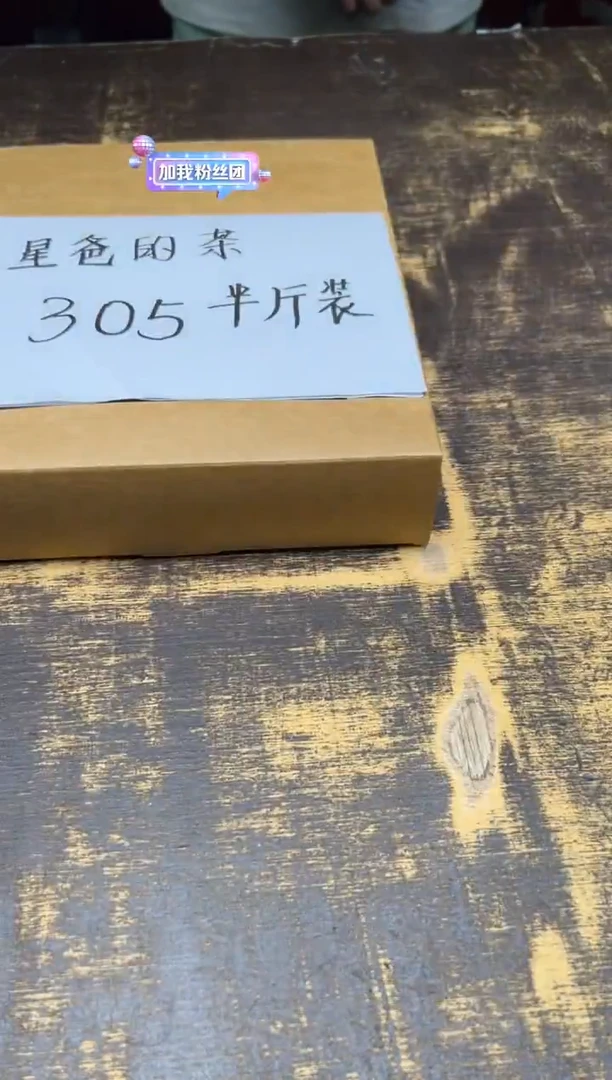 加我粉丝团
星爸的茶
305 半斤装